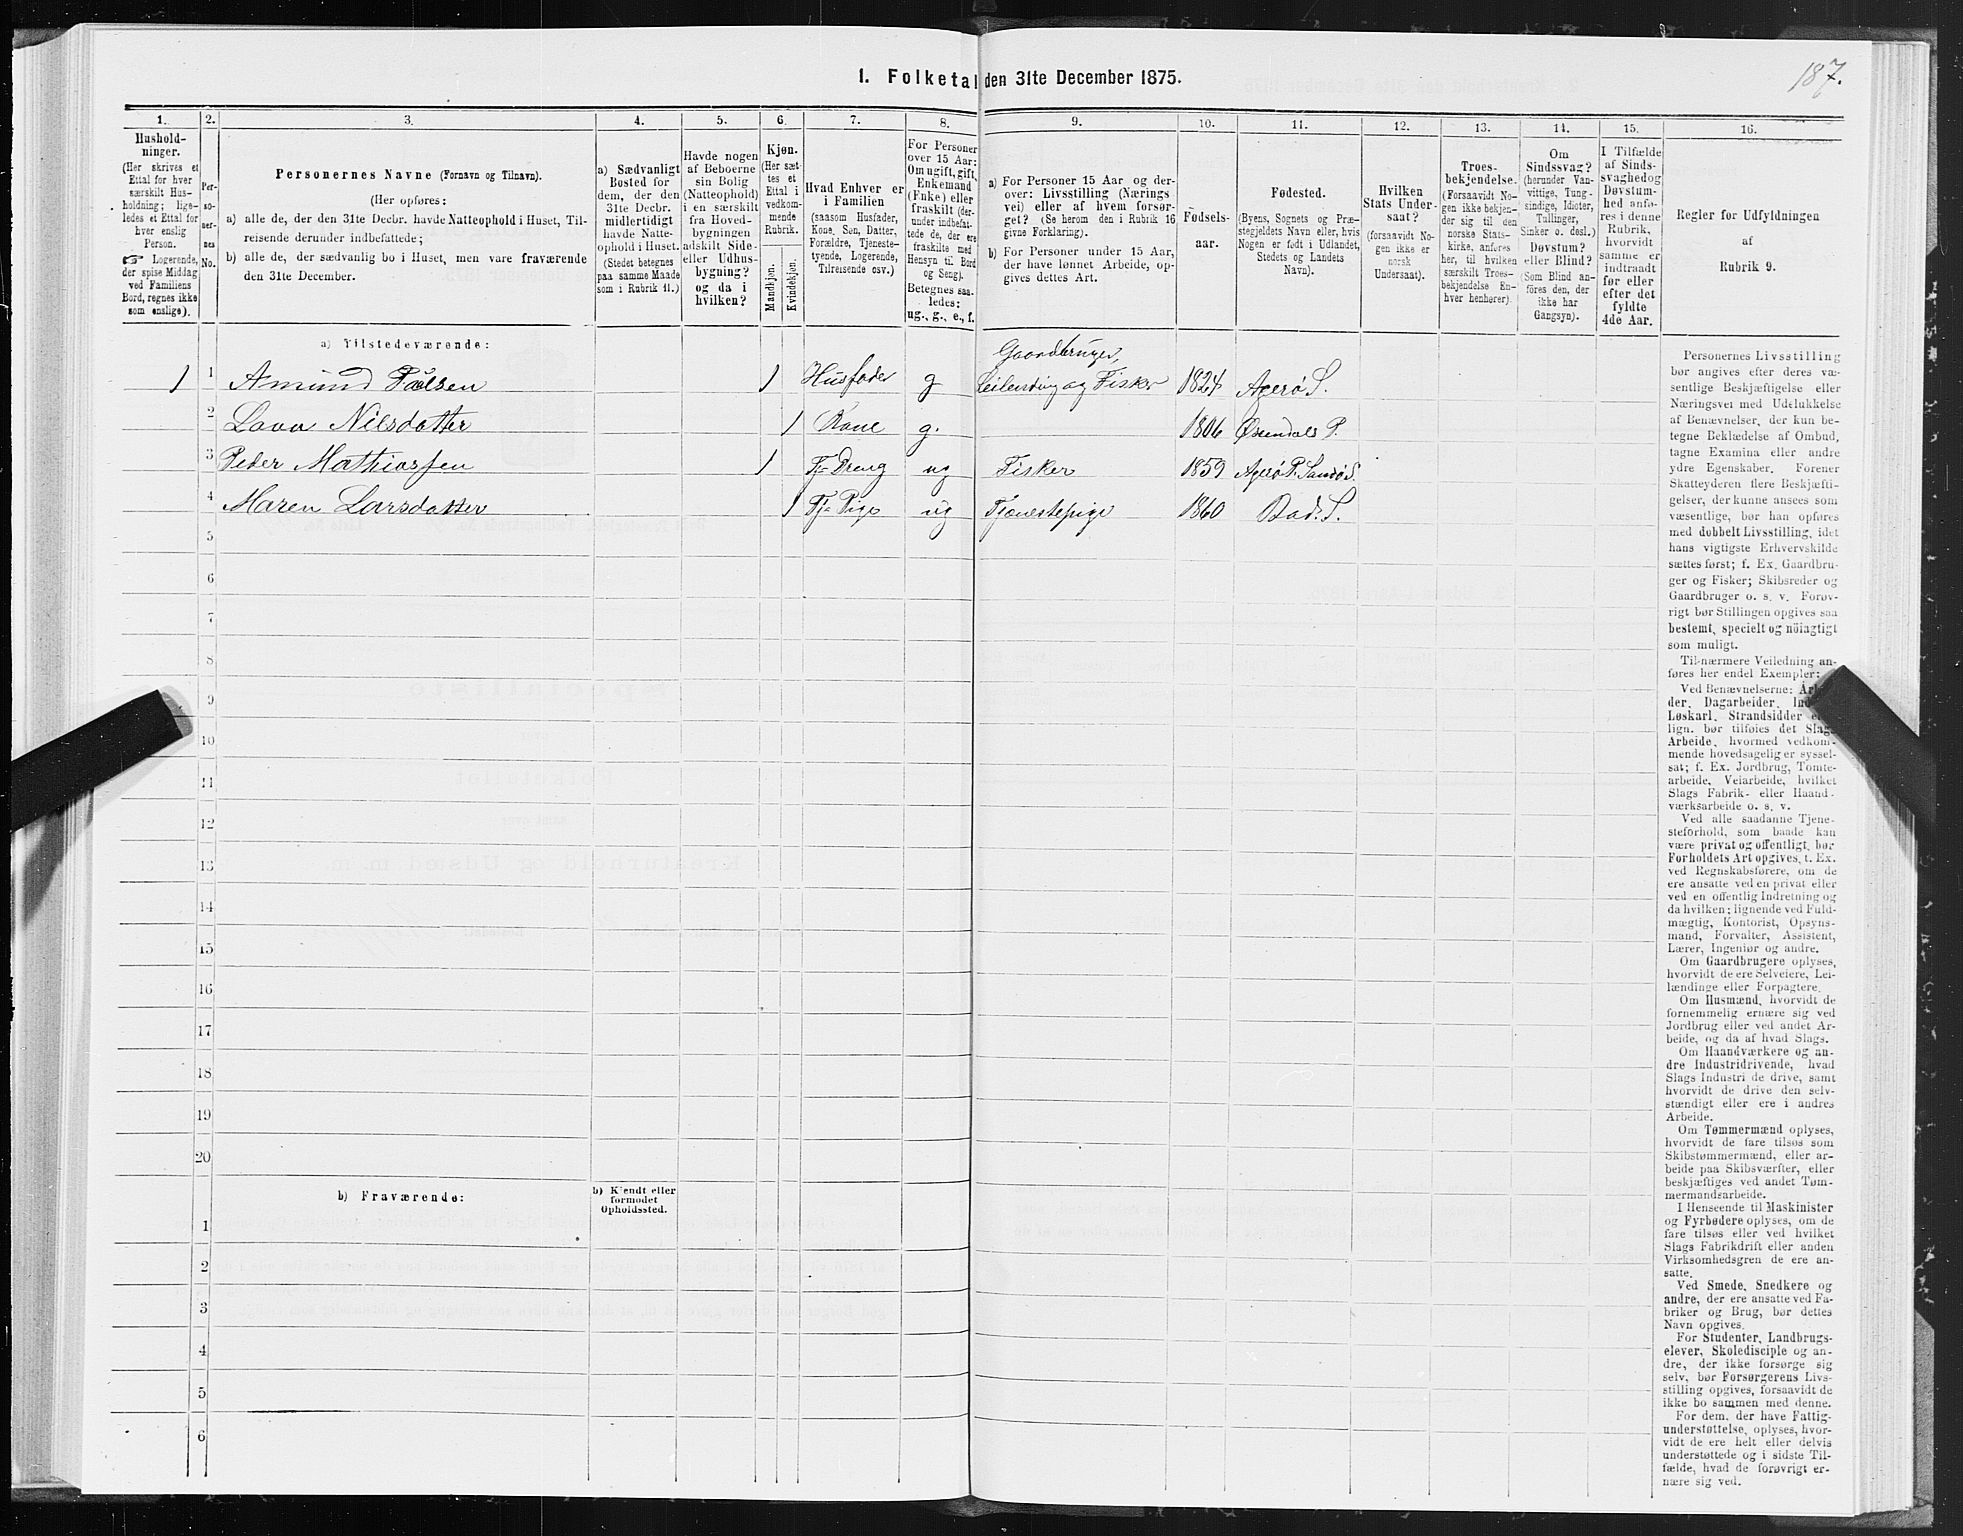 187.
1. Folketal den 31te December 1875.
1. 2. 3. 4. 5. 6. 7. 8. 9. 10. 11. 12. 13. 14. 15. 16.
Hushold-
ninger.
(Her skrives et
Ettal for hver
særskilt Hus-
holdning; lige-
ledes et Ettal for
hver enslig
Person.
☞ Logerende,
der spise Middag
ved Familiens
Bord, regnes ikke
som enslige).
Per-
so-
ner-
nes
No.
Personernes Navne (Fornavn og Tilnavn).
(Her opføres:
a) alle de, der den 31te Decbr. havde Natteophold i Huset, Til-
reisende derunder indbefattede;
b) alle de, der sædvanlig bo i Huset, men vare fraværende
den 31te December.
a) Sædvanligt
Bosted for
dem, der den
31te Decbr.
midlertidigt
havde Natte-
ophold i Huset.
(Stedet betegnes
paa samme Maade
som i Rubrik 11.)
Havde nogen
af Beboerne
sin Bolig
(Natteophold)
i en særskilt
fra Hoved-
bygningen
adskilt Side-
eller Udhus-
bygning?
og da i
hvilken?
Kjøn.
(Her sæt-
tes et
Ettal i
vedkom-
mende
Rubrik.
Mandkjøn.
Kvindekjøn.
Hvad Enhver er
i Familien
(saasom Husfader,
Kone, Søn, Datter,
Forældre, Tjeneste-
tyende, Logerende,
Tilreisende osv.)
For Personer
over 15 Aar:
Om ugift, gift,
Enkemand
(Enke) eller
fraskilt (der-
under indbefat-
tede de, der ere
fraskilte med
Hensyn til Bord
og Seng).
Betegnes saa-
ledes:
ug., g., e., f.
a) For Personer 15 Aar og der-
over: Livsstilling (Nærings-
vei) eller af hvem forsør-
get? (Se herom den i Rubrik 16
givne Forklaring).
b) For Personer under 15 Aar,
der have lønnet Arbeide, op-
gives dettes Art.
Fødsels-
aar.
Fødested.
(Byens, Sognets og Præ-
stegjeldets Navn eller, hvis
Nogen er født i Udlandet,
Stedets og Landets
Navn).
Hvilken
Stats Under-
saat?
(forsaavidt No-
gen ikke er
norsk
Undersaat).
Troes-
bekjendelse.
(Forsaavidt No-
gen ikke bekjen-
der sig til den
norske Stats-
kirke, anføres
her, til hvilken
særskilt Troes-
bekjendelse En-
hver henhører).
Om
Sindssvag?
(herunder Van-
vittige, Tung-
sindige, Idioter,
Tullinger,
Sinker o. desl.)
Døvstum?
eller Blind?
(Som Blind an-
føres den, der
ikke har
Gangsyn).
I Tilfælde
af Sinds-
svaghed og
Døvstum-
hed anfø-
res i denne
Rubrik,
hvorvidt
samme er
indtraadt
før eller
efter det
fyldte
4de Aar.
Regler for Udfyldningen
af
Rubrik 9.
a) Tilstedeværende:
Gaardbruger,
1 1 Amund Pålsen 1 Husfader g Leilending og Fisker 1824 Agerø S.
2 Nilsdatter 1 Kone g. 1806 P.
3 Peder Mathiassen 1 Tj= Dreng ug Fisker 1859 Agerø P. Sandø S.
4 Maren Larsdatter 1 Tj= Pige ug Tjenestepige 1860 Bod. S.
5
6
7
8
9
10
11
12
13
14
15
16
17
18
19
20
b) Fraværende:
b) Kjendt eller
formodet
Opholdssted.
1
2
3
4
5
6
Personernes Livsstilling
bør angives efter deres væ-
sentlige Beskjæftigelse eller
Næringsvei med Udelukkelse
af Benævnelser, der kun be-
tegne Beklædelse af Ombud,
tagne Examina eller andre
ydre Egenskaber. Forener
Skatteyderen flere Beskjæfti-
gelser, der kunne ansees som
væsentlige, bør han opføres
med dobbelt Livsstilling, idet
hans vigtigste Erhvervskilde
sættes først; f. Ex. Gaardbru-
ger og Fisker; Skibsreder og
Gaardbruger o. s. v. Forøv-
rigt bør Stillingen opgives saa
bestemt, specielt og nöiagtigt
som muligt.
Til nærmere Veiledning an-
føres her endel Exempler:
Ved Benævnelserne:
der, Dagarbeider,
Løskarl, Strandsidder
lign. bør tilføies det Slags
Arbeide, hvormed vedkom-
mende hovedsagelig er syssel-
sat; f. Ex. Jordbrug, Tomte-
arbeide, Veiarbeide, hvilket
Slags Fabrik- eller Haand-
værksarbeide o. s. v.
Ved alle saadanne Tjene-
steforhold, som baade kan
være privat og offentligt, bør
Forholdets Art opgives, f. Ex.
ved Regnskabsførere, om de
ere ansatte ved en privat eller
ved en offentlig Indretning og
da hvilken; lignende ved Fuld-
mægtig, Kontorist, Opsyns-
mand, Forvalter, Assistent,
Lærer, Ingeniør og andre.
Om Gaardbrugere oplyses,
hvorvidt de ere Selveiere, Lei-
lændinge eller Forpagtere.
Om Husmænd, hvorvidt de
fornemmelig ernære sig ved
Jordbrug eller ved andet Ar-
beide, og da af hvad Slags.
Om Haandværkere og an-
dre Industridrivende, hvad
Slags Industri de drive, samt
hvorvidt de drive den selv-
stændigt eller ere i andres
Arbeide.
Om Tømmermænd oplyses,
hvorvidt de fare tilsøs som
Skibstømmermænd, eller ar-
beide paa Skibsværfter, eller
beskjæftiges ved andet Tøm-
mermandsarbeide.
I Henseende til Maskinister
og Fyrbødere oplyses, om de
fare tilsøs eller ved hvilket
Slags Fabrikdrift eller anden
Virksomhedsgren de ere an-
satte.
Ved Smede, Snedkere og
andre, der ere ansatte ved Fa-
briker og Brug, bør dettes
Navn opgives.
For Studenter, Landbrugs-
elever, Skoledisciple og an-
dre, der ikke forsørge sig
selv, bør Forsørgerens Livs-
stilling opgives, forsaavidt de
ikke bo sammen med denne.
For dem, der have Fattig-
understøttelse, oplyses, hvor-
vidt de ere helt eller delvis
understøttede og i sidste Til-
fælde, hvad de forøvrigt er-
nære sig ved.